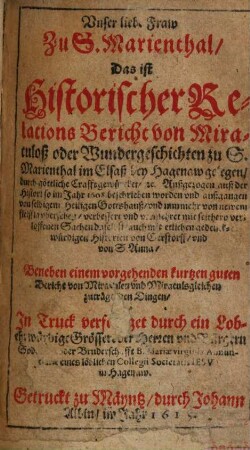 Vnser liebe Fraw
Zu S. Marienthal/
Das ist
Historischer Re-
lations Bericht von Mira-
culoß oder Wundergeschichten zu S.
Marienthal im Elsaß bey Hagenaw gelegen/
durch göttliche Außgezogen auß der
Histori so im Jahr beschrieben worden vnd außgangen
von selbigem Heiligen Gottshauß/ vnd nunmehr von newem
verbessert vnd mit seithero ver-
loffenen Sachen auch mit etlichen
würdigen Historien von vnd
von S. Anna/
Beneben einem vorgehenden kurtzen guten
Bericht von Miraculen vnd Miraculsgleichen
zuträglichen Dingen/
In Truck verfertiget durch ein Lob-
würdige der Herren vnd Bürgern
Sod der Brudersch.
eines löblichen Collegii Societatis
in Hagenaw.
Getruckt zu Mäyntz/ durch Johann
Albin/ im Jahr